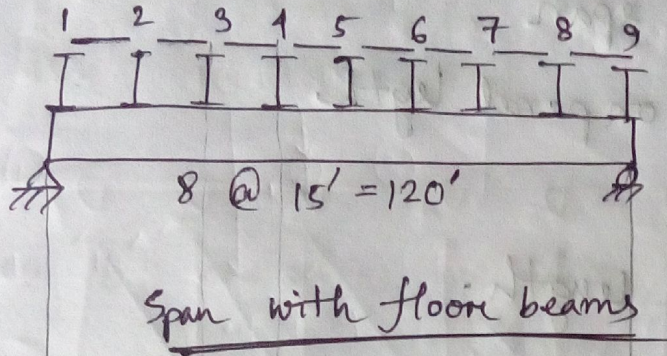 1 2 3 4 5 6 7 8 9
8 @ 15' = 120'
Span with floor beams